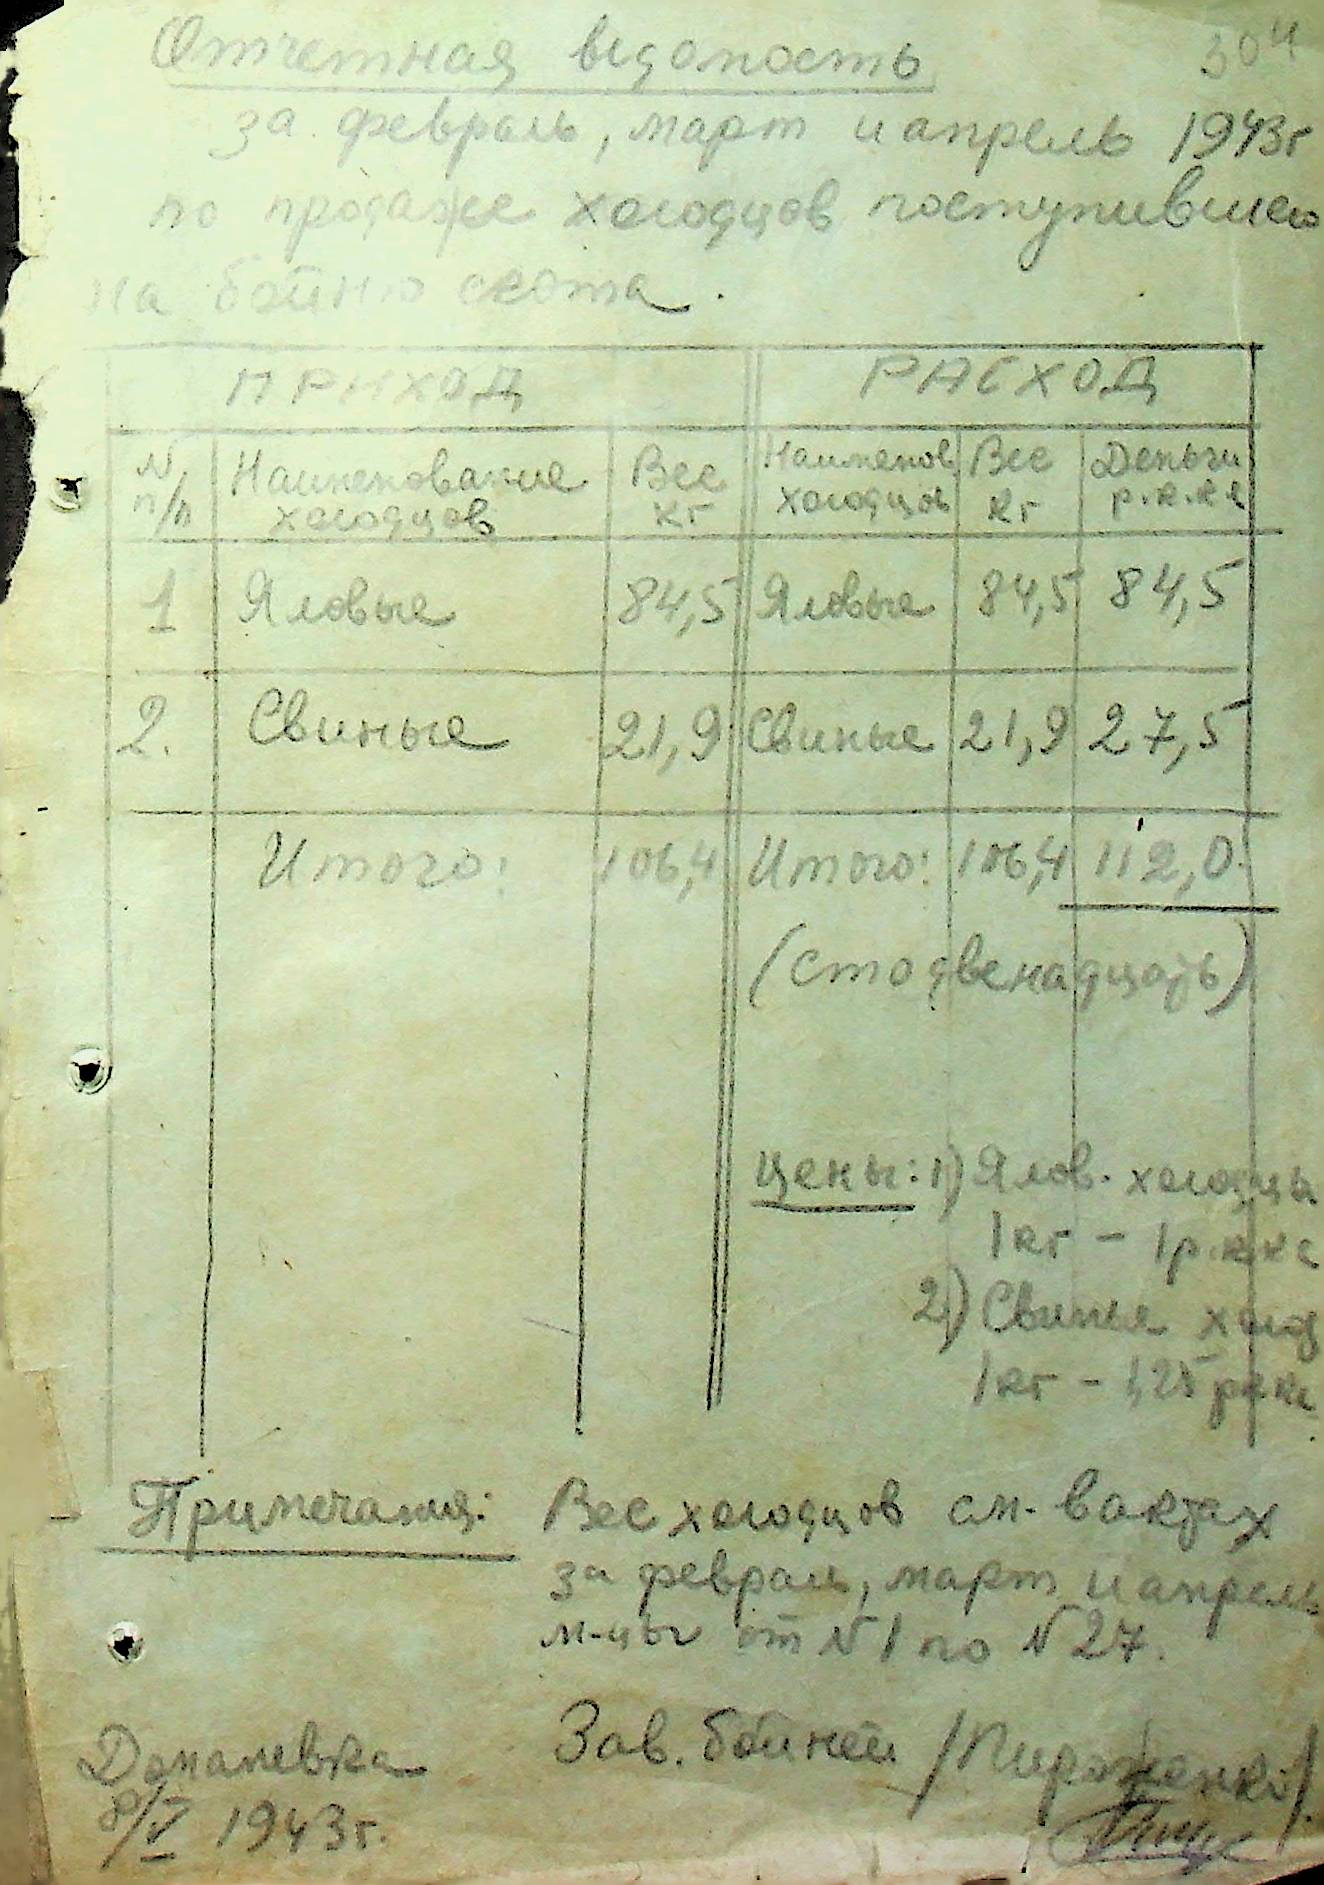 304
Отчетная ведомость
за февраль, март и апрель 1943г
по продаже холодцов поступившего
на бойню скота.
ПРИХОД РАСХОД
N п/п Наименование холодцов Вес кг Наименов. холодцов Вес кг Деньги р.к.к.с
1 Яловые 84,5 Яловые 84,5 84,5
2. Свиные 21,9 Свиные 21,9 27,5
Итого: 106,4 Итого: 106,4 112,0
(сто двенадцать)
Цены: 1) Ялов. холодцы
1 кг – 1 р.к.кс
2) Свинья холод
1 кг – 1,25 р.к.кс
Примечания: Вес холодцов см. в актах
за февраль, март и апрель
м-цы от N 1 по N 27.
Доманевка Зав. бойней /Пироженко/
8/V 1943г.